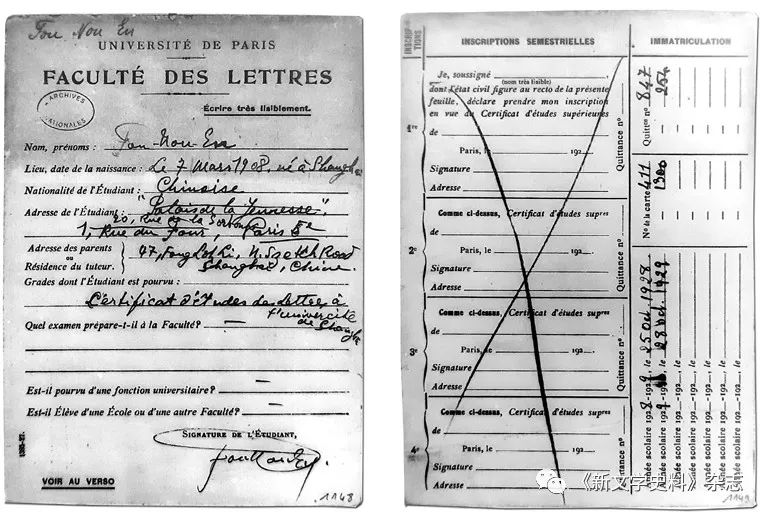 Fou Nou En
UNIVERSITÉ DE PARIS
FACULTÉ DES LETTRES
ARCHIVES
NATIONALES
Écrire très lisiblement.
Nom, prénoms : Fou-Nou-En
Lieu, date de la naissance : Le 7 Mars 1908, né à Shangha
Nationalité de l'Étudiant : Chinoise
Adresse de l'Étudiant : "Palais de la Jeunesse".
20, Rue de la Sorbonne
1, Rue du Four, Paris 5e
Adresse des parents
ou
Résidence du tuteur.
47, N. Szetch Road
Shanghai, Chine.
Grades dont l'Étudiant est pourvu :
Certificat d'Etudes des Lettres à
l'université
de Shangh
Quel examen prépare-t-il à la Faculté? —
Est-il pourvu d'une fonction universitaire? —
Est-il Élève d'une École ou d'une autre Faculté? —
SIGNATURE DE L'ÉTUDIANT,
VOIR AU VERSO
1148
INSCRIPTIONS
INSCRIPTIONS SEMESTRIELLES
Je, soussigné
(nom très lisible)
dont l'état civil figure au recto de la présente
feuille, déclare prendre mon inscription
en vue du Certificat d'études supérieures
1re
de
Paris, le 192
Signature
Adresse
Quittance nº
Comme ci-dessus, Certificat d'études supres
2e
de
Paris, le 192
Signature
Adresse
Quittance nº
Comme ci-dessus, Certificat d'études supres
3e
de
Paris, le 192
Signature
Adresse
Quittance nº
Comme ci-dessus, Certificat d'études supres
4e
de
Paris, le 192
Signature
Adresse
Quittance nº
IMMATRICULATION
Année scolaire 1928-1929, le 25 Oct 1928 Nº de la carte 411 Quittce nº 847
Année scolaire 1929-19, le 28 Oct. 1929 1300 254
Année scolaire 192 -192 , le
Année scolaire 192 -192 , le
Année scolaire 192 -192 , le
Année scolaire 192 -192 , le
Année scolaire 192 -192 , le
1149
《新文学史料》杂志